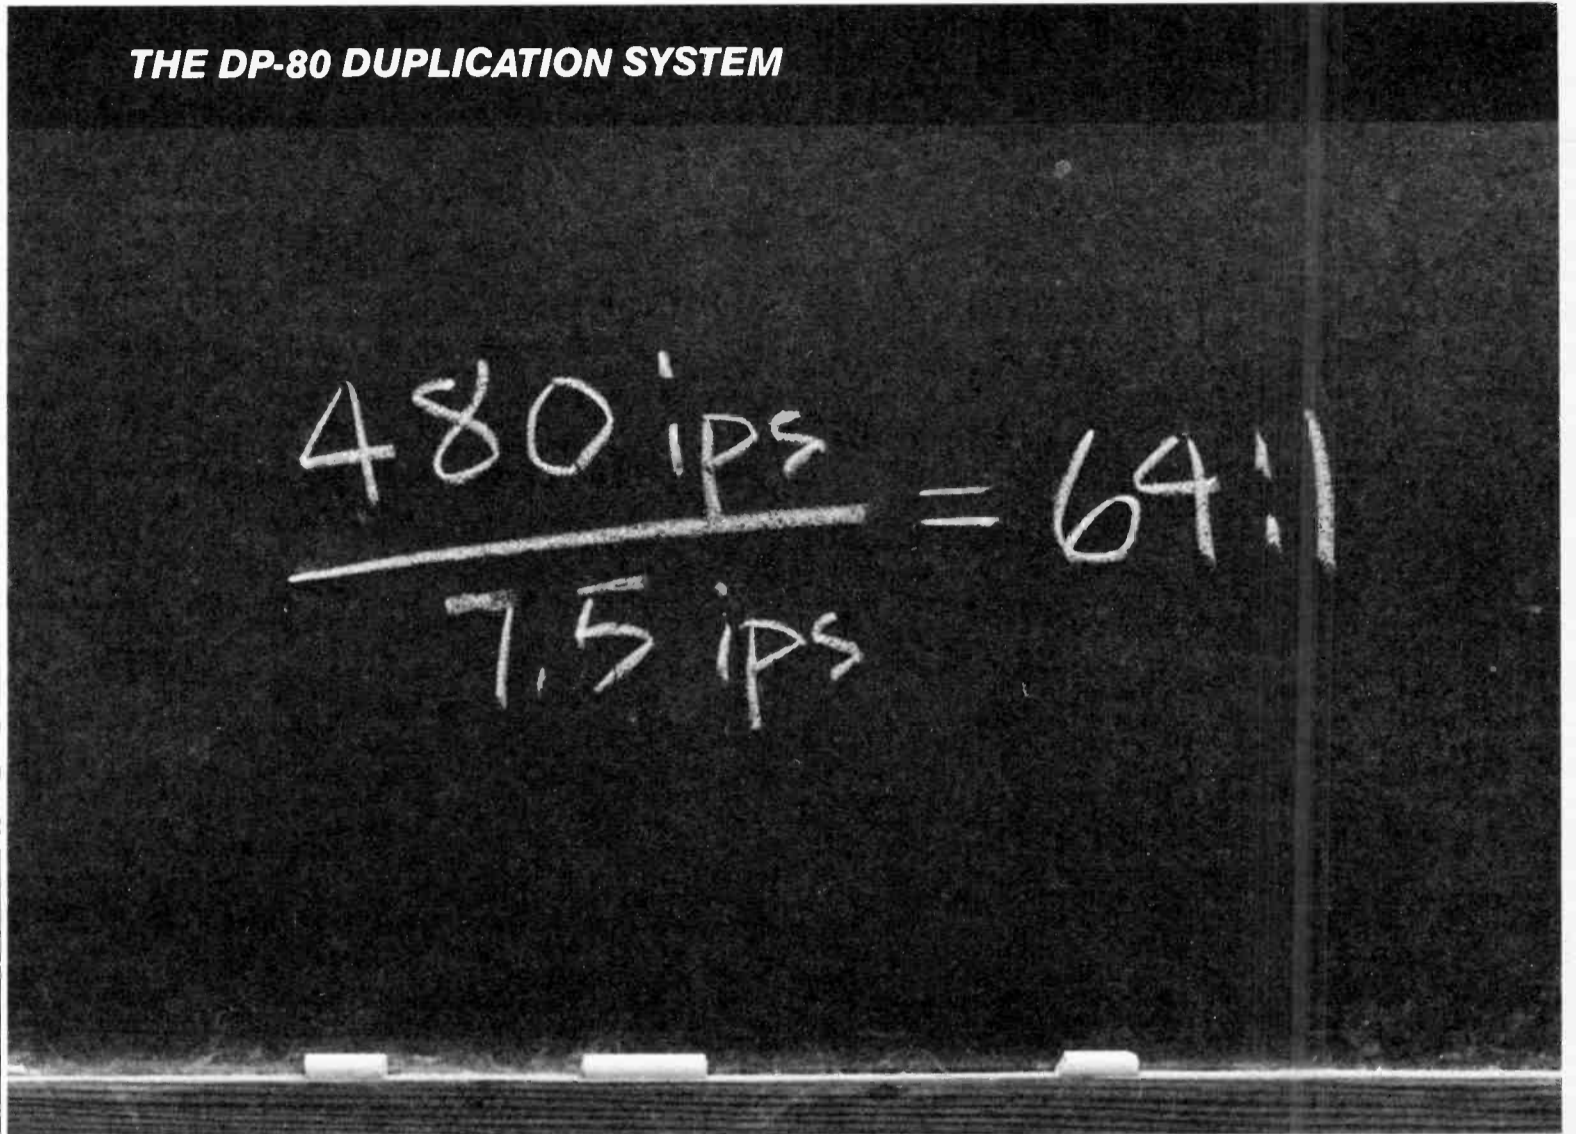 THE DP-80 DUPLICATION SYSTEM
480 ips
= 64:1
7.5 ips